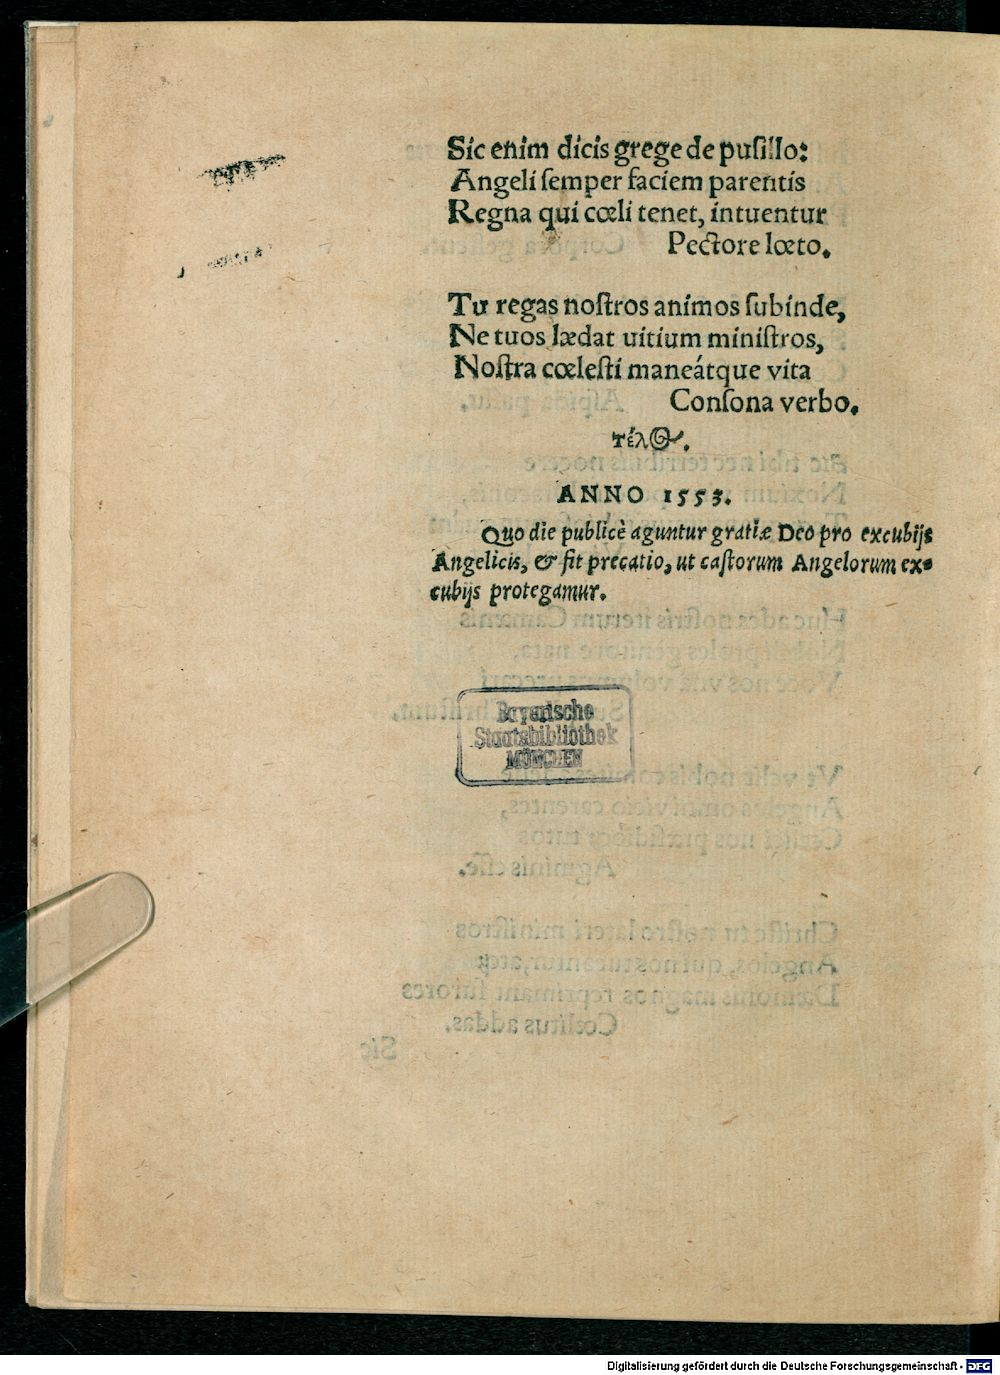 Sic enim dicis grege de pusillo:
Angeli semper faciem parentis
Regna qui cœli tenet, intuentur
Pectore lœto.
Tu regas nostros animos subinde,
Ne tuos lædat uitium ministros,
Nostra cœlesti maneátque vita
Consona verbo.
τέλος.
ANNO 1553.
Quo die publicè aguntur gratiæ Deo pro excubijs
Angelicis, & fit precatio, ut castorum Angelorum ex-
cubijs protegamur.
Bayerische
Staatsbibliothek
MÜNCHEN
Digitalisierung gefördert durch die Deutsche Forschungsgemeinschaft - DFG